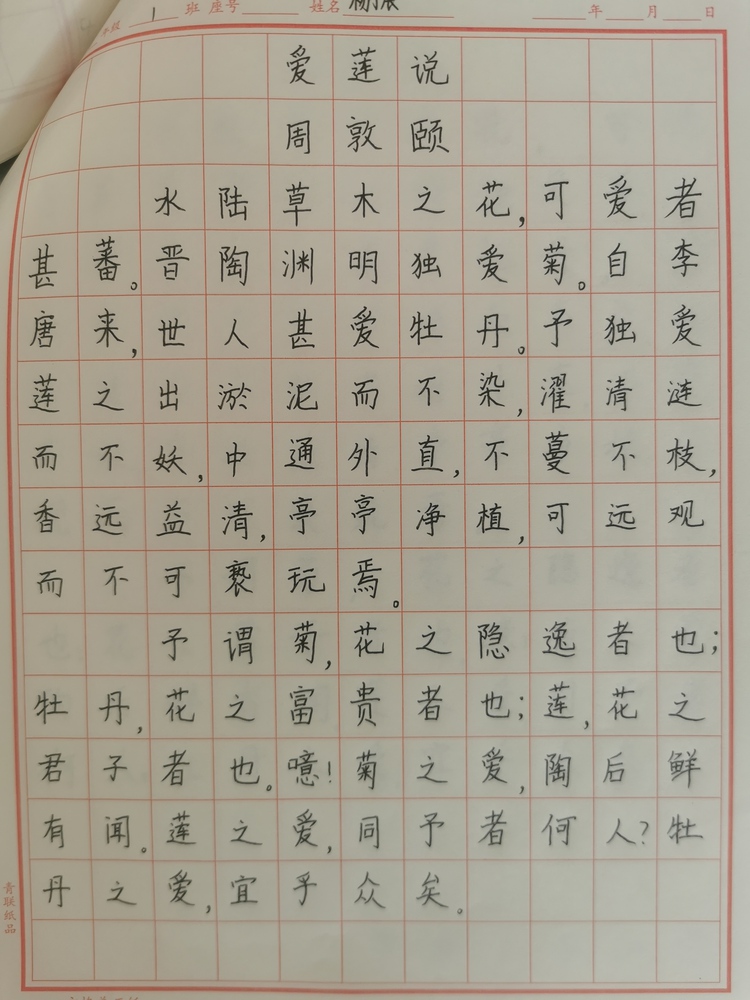 班 座号 姓名 年 月 日
爱莲说
周敦颐
水陆草木之花,可爱者
甚蕃。晋陶渊明独爱菊。自李
唐来,世人甚爱牡丹。予独爱
莲之出淤泥而不染,濯清涟
而不妖,中通外直,不蔓不枝,
香远益清,亭亭净植,可远观
而不可亵玩焉。
予谓菊,花之隐逸者也;
牡丹,花之富贵者也;莲,花之
君子者也。噫!菊之爱,陶后鲜
有闻。莲之爱,同予者何人?牡
丹之爱,宜乎众矣。
青联纸品